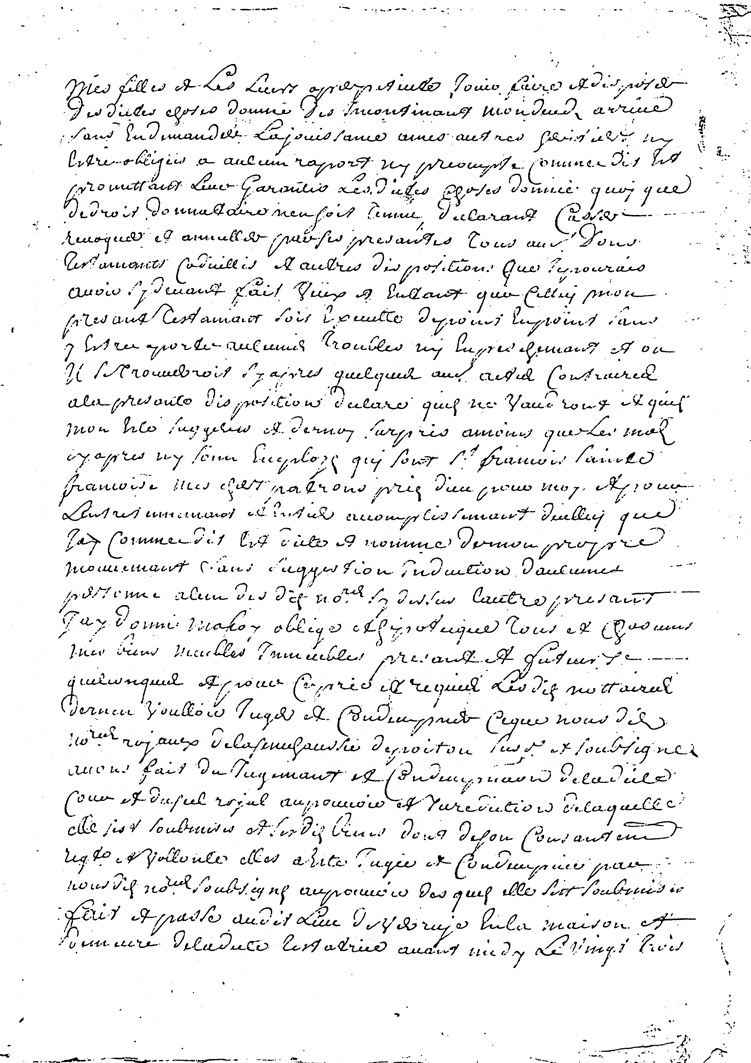 mes filles et Les Leurs aperpetuite Jouir faire et disposer
Desdictes choses donnée des Incontinant mondeced arrivé
sans En demander La jouissance ames autres heritiers ny
Estre obligés a aulcun raport ny precompte comme dit Est
promettant Luy Garantir Lesdictes choses donnée quoy que
de droit donnataire nen soit tenue, declarant Casser
revoquer et annuller par ses presantes tous aus. Dons
testamants Codicilles et autres dispositions que Jy pourais
avoir sydevant fait Veux et Entant que Celluy mon
presant Testamant soit Executté depoint Enpoint sans
y Estre aporté aulcune troubles ny Enpeschemant et ou
Il se trouveroit syapres quelques aus. actes Contraires
ala presante disposition declare quils ne Vaudront et quils
mon Esté suggérés et dernoy surpris amoins que Les mots
cyapres ny soint Employés qui sont St. francois Sainte
francoise mes chers patrons priés dieu pour moy et pour
Lentretenemant et Entier acomplissemant dicelluy que
Jay Comme dit Est dicté et nommé demon propre
mouvemant sans suggestion Induction daulcunes
personne alun desdis nores sy dessus lautre presant
Jay donné mafoy obligé et hipotequé tous et chascuns
mes biens meubles Immeubles presant et futurs
quelconques et pour Ce prié et requis Lesdis nottaires
dernen Voulloir Juger et Condempner Ceque nous dis
nores royaux de la senechaussée depoitou sus. et soubsignés
avons fait du Jugemant et Condempnation deladicte
Cour et dusel royal aupouvoir et Juredition delaquelle
elle sest soubmise et sesdis biens dont deson Consantemt
reqte et Vollonté elles a Esté Jugée et Condempnée par
nousdis nores soubsignés aupouvoir desquels elle sest soubmise
fait et passé audit Lieu de Verruye En la maison et
demeure deladicte testatrice avant midy Le Vingt trois